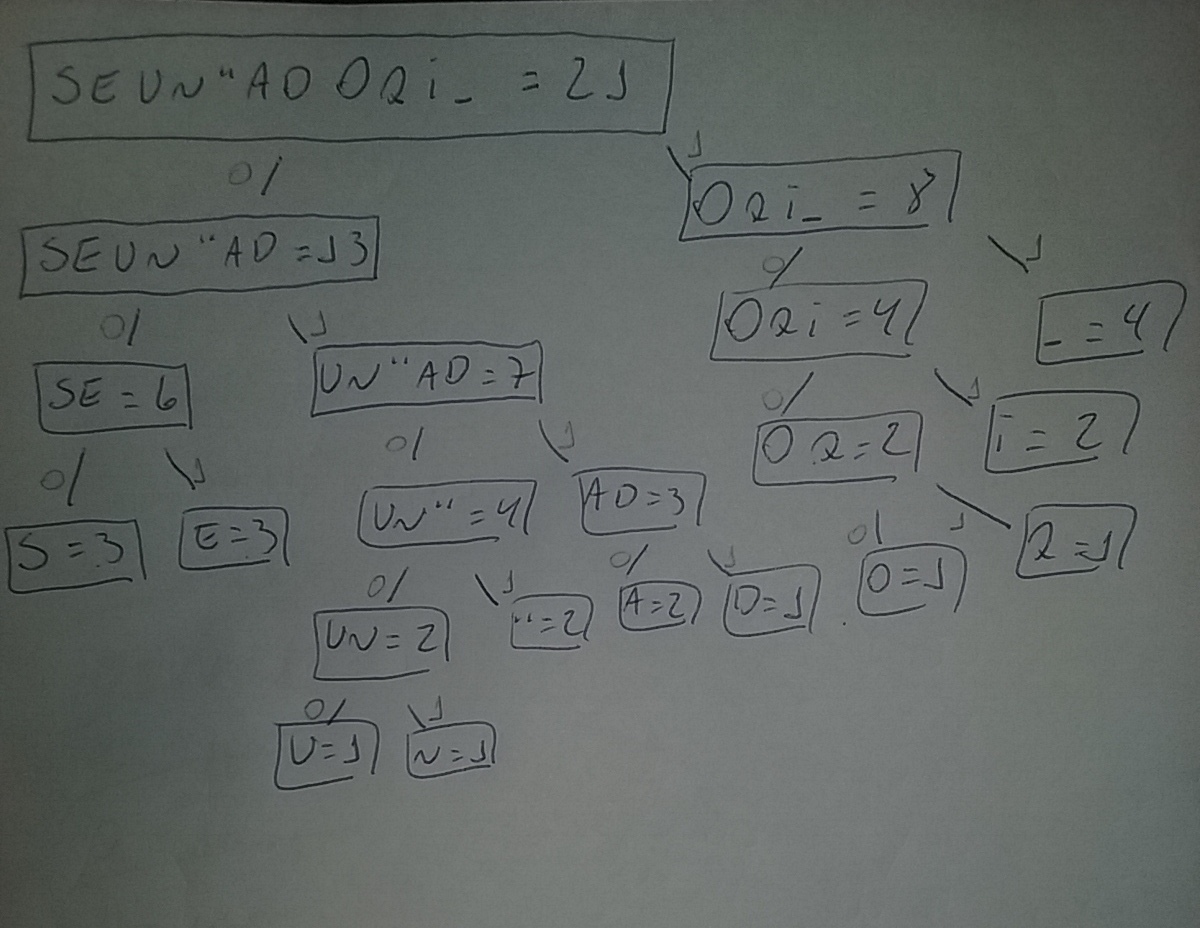 SEUN"AD ORi_ = 21
0/ \1
ORi_ = 8
SEUN"AD = 13
0/ \1
0/ \1
ORi = 4
_ = 4
SE = 6
UN"AD = 7
0/ \1
OR = 2
i = 2
0/ \1
0/ \1
S = 3
E = 3
UN" = 4
AD = 3
0/ \1
R = 1
0/ \1
0/ \1
O = 1
UN = 2
" = 2
A = 2
D = 1
0/ \1
U = 1
N = 1